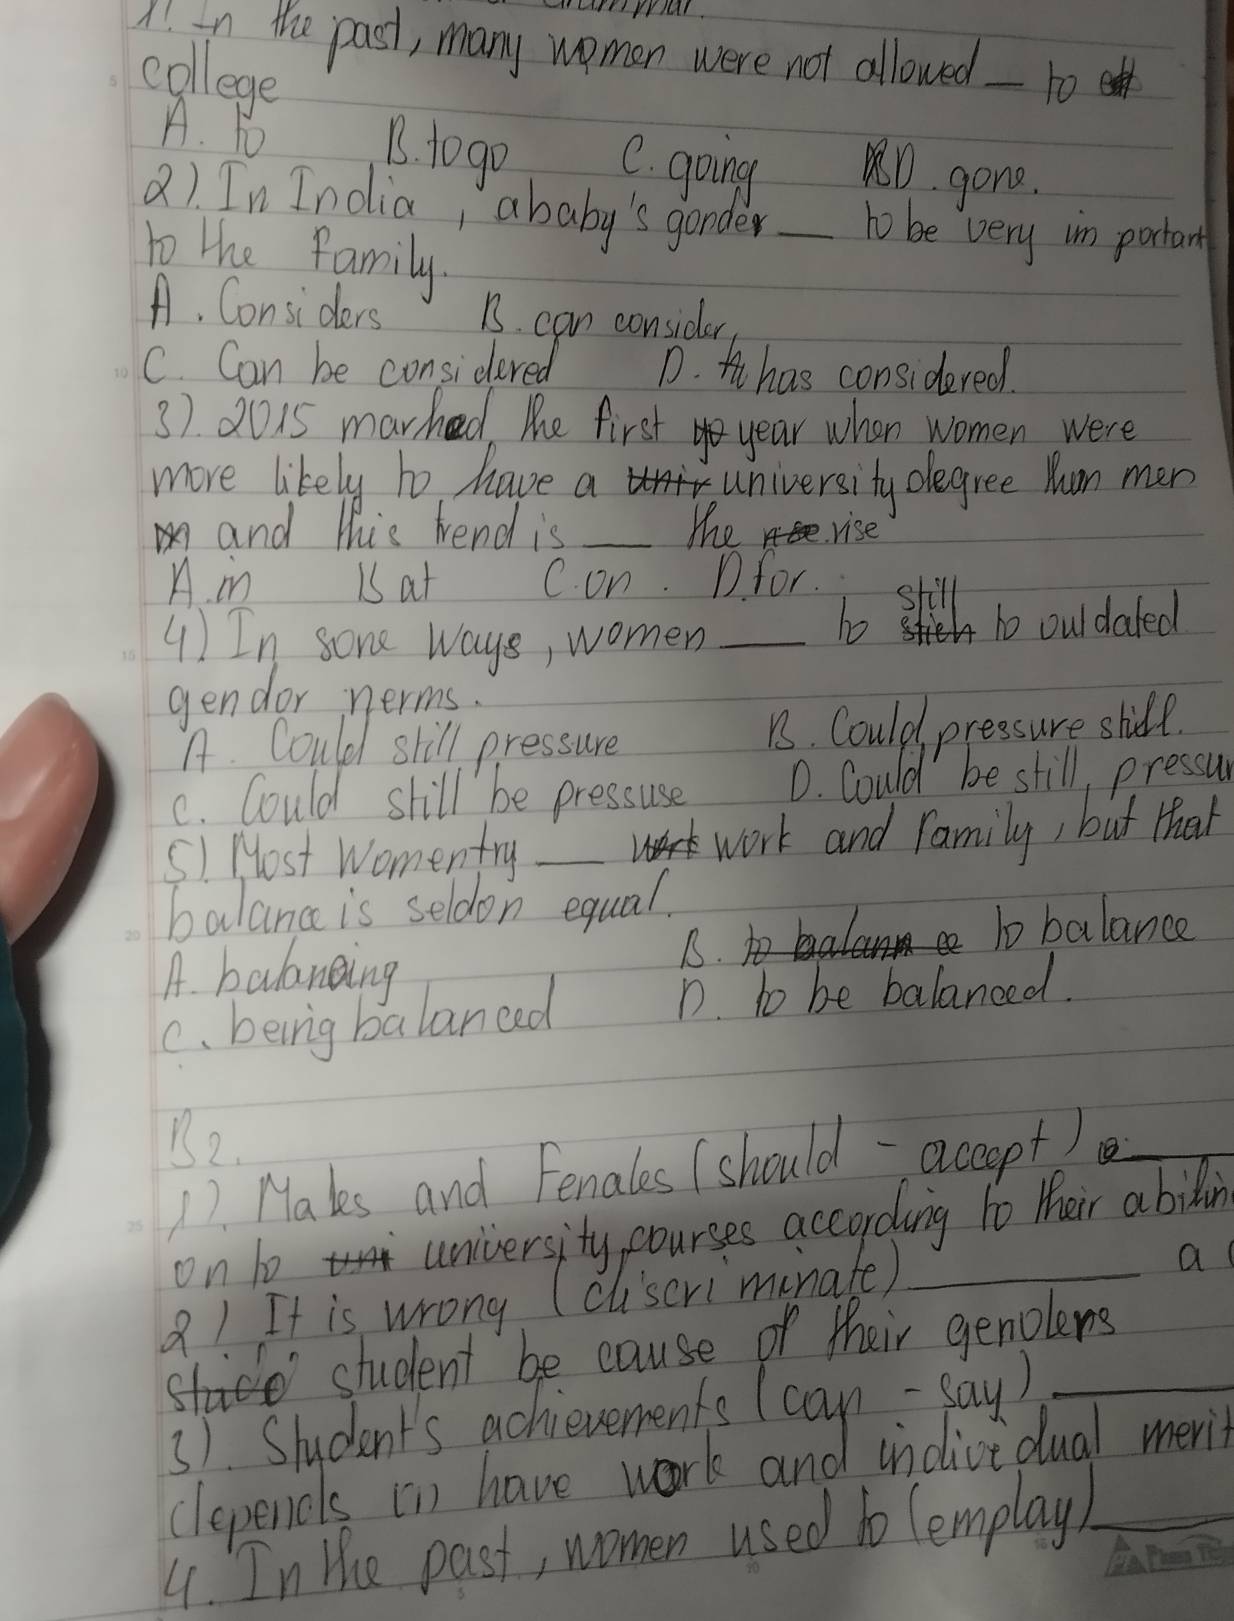 1). In the past, many women were not allowed __ to
college
A. to B. to go C. going D. gone.
2). In India, a baby's gonder __ to be very im portant
to the family.
A. Considers B. can consider,
C. Can be considered D. has considered.
3). 2015 marhed the first year when women were
more likely to have a university degree than men
and this trend is __ the rise
A. in B at C. on. D. for.
4) In sone ways, women __ to still to outdated
gendor nerms.
A. Could still pressure B. Could pressure still.
C. Could still be pressuse D. Could be still, pressur
5) Most women try __ work and family, but that
balance is seldon equal.
A. balancing B. to balance
C. being balanced D. to be balanced.
B2.
1). Males and Fenales (should - accept) __
on to university courses according to their
2) It is wrong (discriminate) __ a
student be cause of their genders
3). Student's achievements (can - say) __
depends on have work and individual merit
4. In the past, women used to (emplay) __